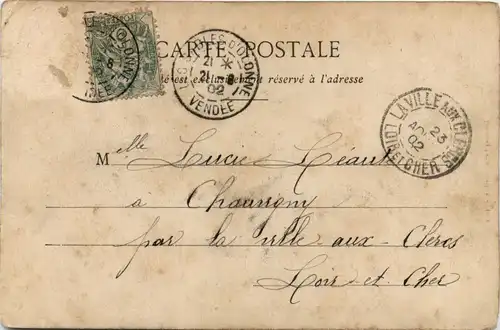 CARTE POSTALE
est exclusivement réservé à l'adresse
LES SABLES D'OLONNE
21
21 - 8
02
VENDÉE
LA VILLE AUX CLERCS
23
AOU
02
LOIR-ET-CHER
Melle Lucie
à Chauvigny
par la ville aux-Clercs
Loir-et-Cher